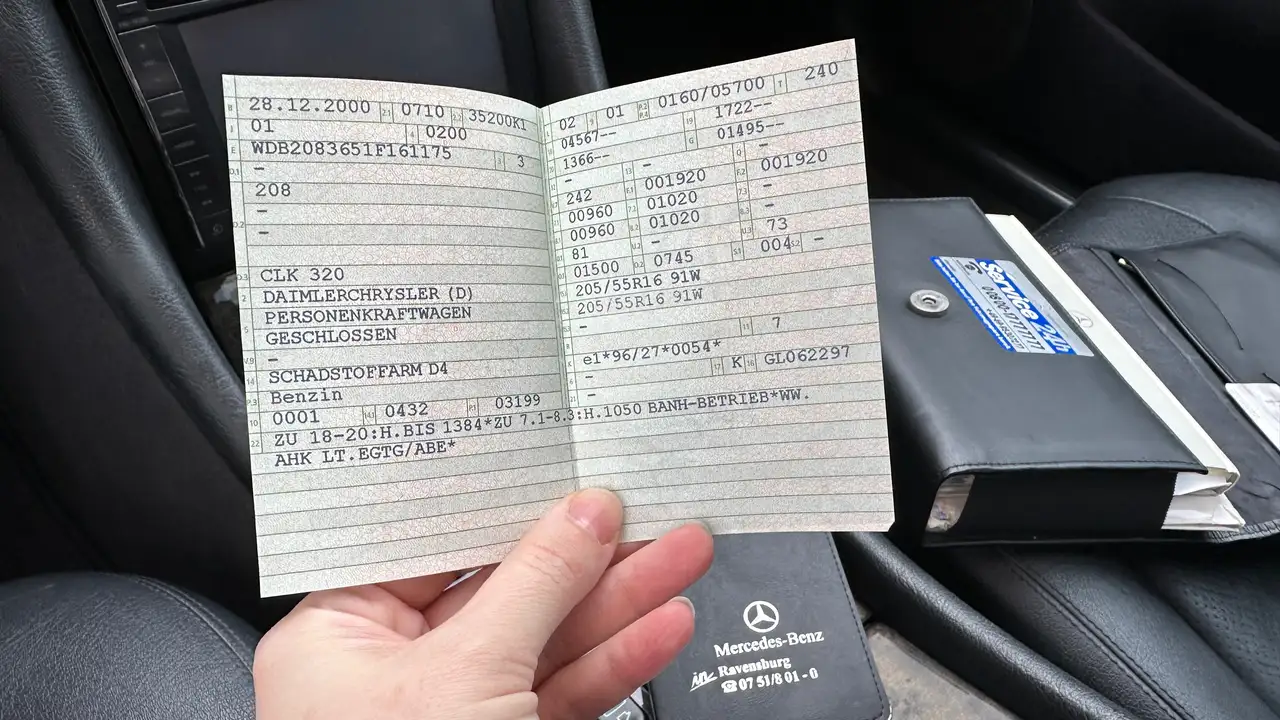 28.12.2000 0710 35200K1
01 0200
WDB2083651F161175 3
-
208
-
-
CLK 320
DAIMLERCHRYSLER (D)
PERSONENKRAFTWAGEN
GESCHLOSSEN
-
SCHADSTOFFARM D4
Benzin
0001 0432 03199
ZU 18-20:H.BIS 1384*ZU 7.1-8.3:H.1050 BANH-BETRIEB*WW.
AHK LT.EGTG/ABE*
02 01 0160/05700 240
04567-- 1722--
1366-- 01495--
- - -
242 001920 001920
00960 01020 -
00960 01020 -
81 - 73
01500 0745 004 -
205/55R16 91W
205/55R16 91W
- 7
e1*96/27*0054*
- K GL062297
-
Service 24h
Mercedes-Benz
Ravensburg
☎ 07 51/8 01 - 0